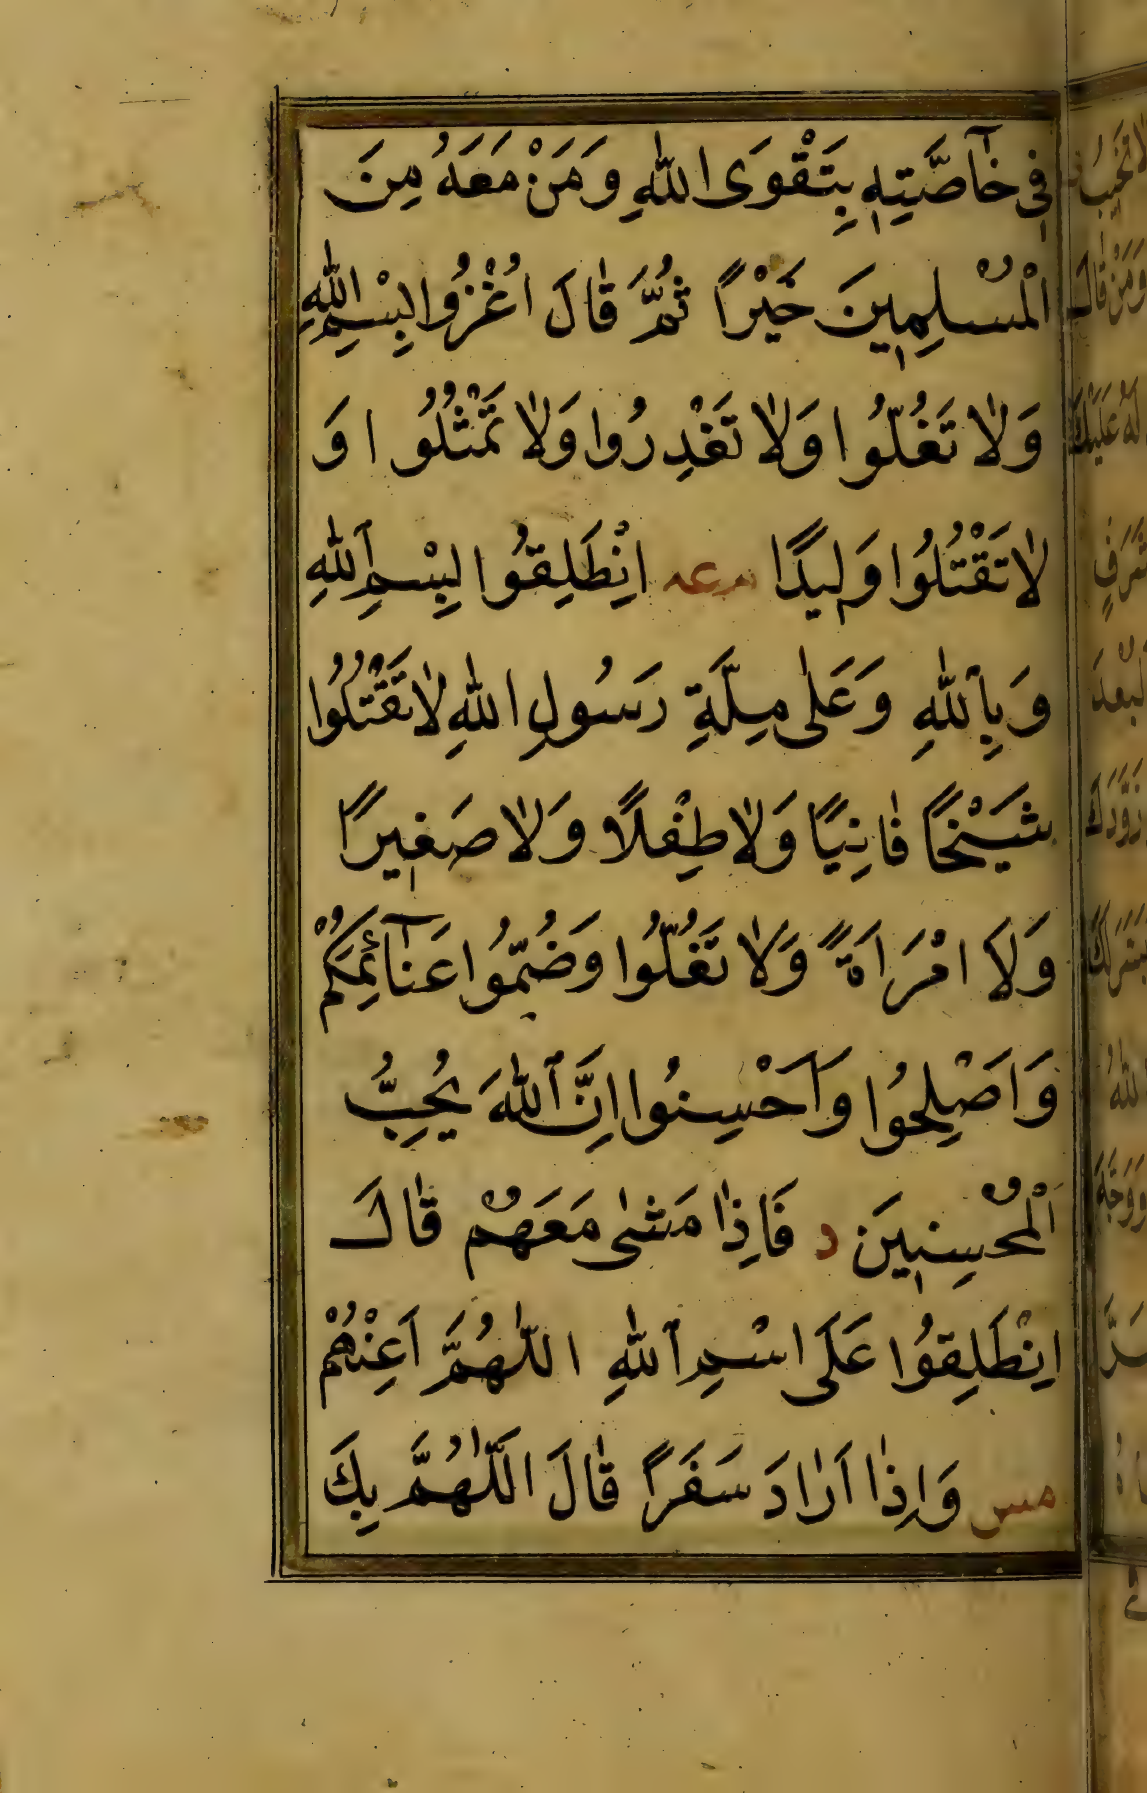 فِي خَآصَّتِهِ بِتَقْوَى اللّٰهِ وَمَنْ مَعَهُ مِنَ
الْمُسْلِمِينَ خَيْرًا ثُمَّ قَالَ اُغْزُوا بِسْمِ اللّٰهِ
وَلَا تَغُلُّوا وَلَا تَغْدِرُوا وَلَا تَمْثُلُوا وَ
لَا تَقْتُلُوا وَلِيدًا م عه اِنْطَلِقُوا بِسْمِ اللّٰهِ
وَبِاللّٰهِ وَعَلٰى مِلَّةِ رَسُولِ اللّٰهِ لَا تَقْتُلُوا
شَيْخًا فَانِيًا وَلَا طِفْلًا وَلَا صَغِيرًا
وَلَا امْرَاَةً وَلَا تَغُلُّوا وَضُمُّوا غَنَآئِمَكُمْ
وَاَصْلِحُوا وَاَحْسِنُوا اِنَّ اللّٰهَ يُحِبُّ
الْمُحْسِنِينَ د فَاِذَا مَشٰى مَعَهُمْ قَالَ
اِنْطَلِقُوا عَلَى اسْمِ اللّٰهِ اللّٰهُمَّ اَعِنْهُمْ
مس وَاِذَا اَرَادَ سَفَرًا قَالَ اللّٰهُمَّ بِكَ